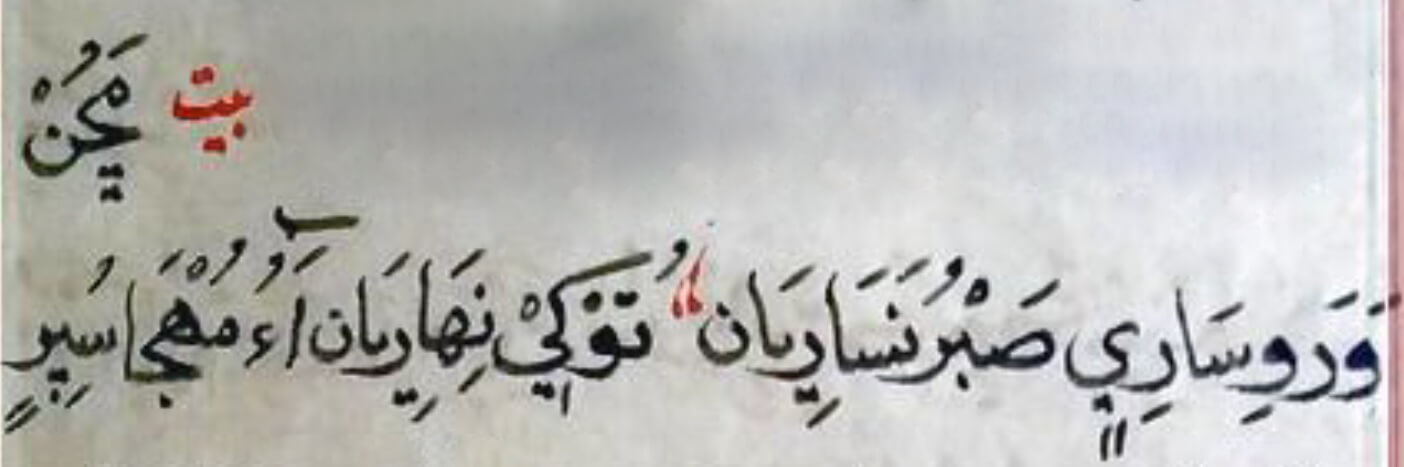 بيت مَڃُنْ
وَرَ وِسَارِيٍ صَبْرُ نَسَارِيَان ،، تُوْکِيْ نِهَارِيَان آءُ مُنْهْجَا سُپِرٍ